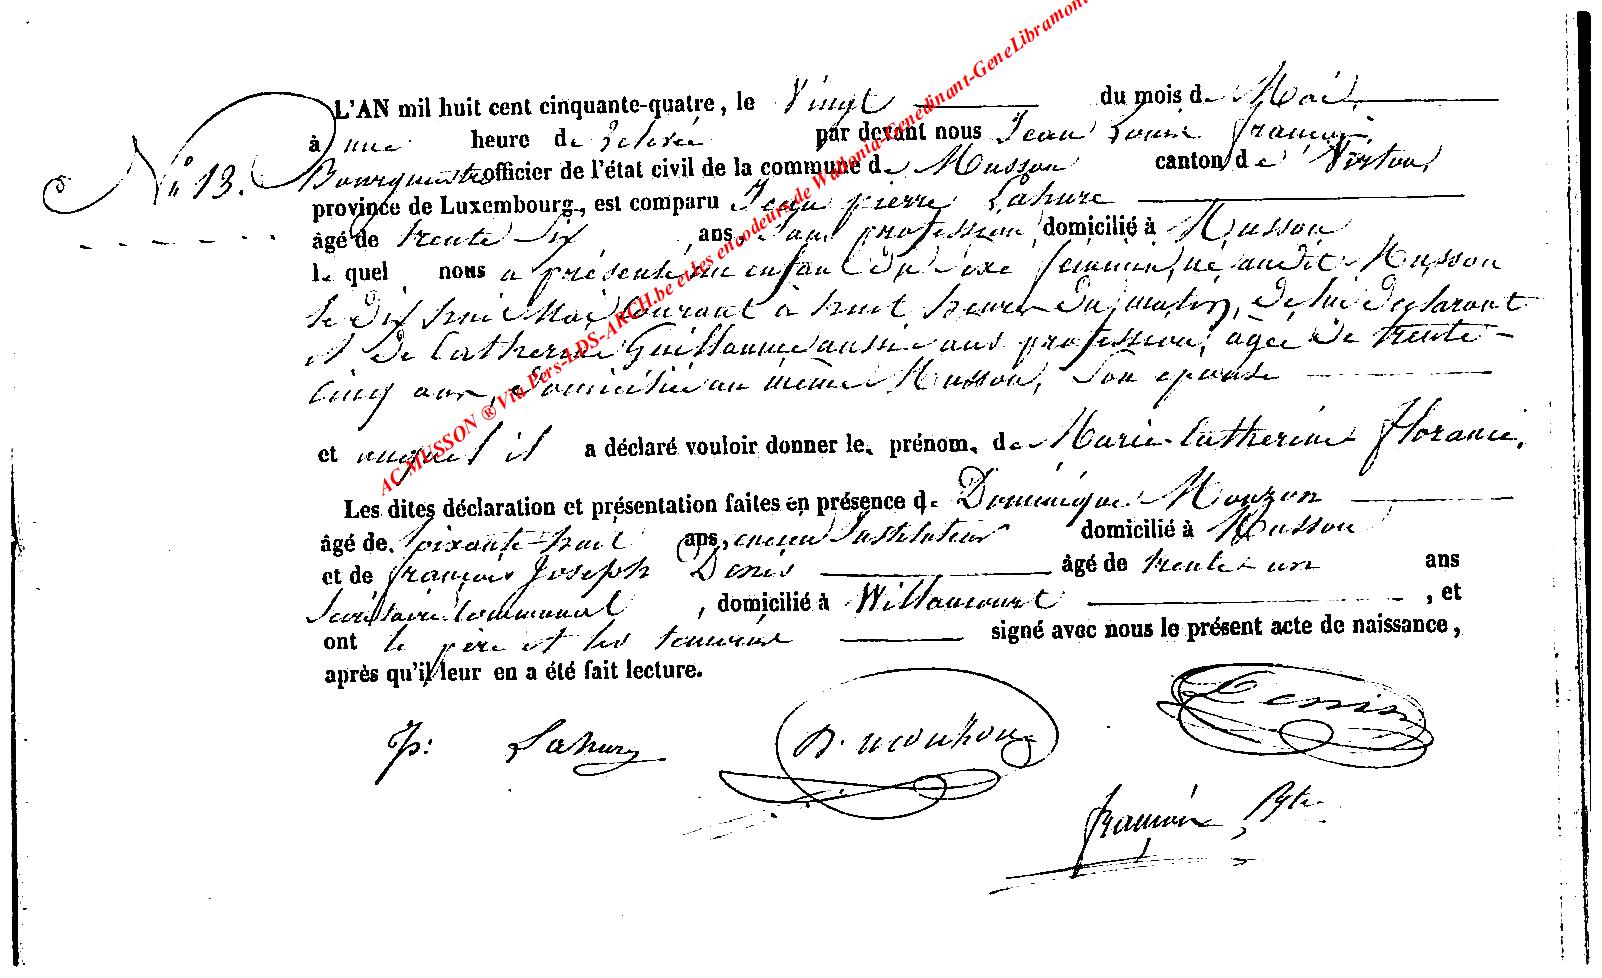 L'AN mil huit cent cinquante-quatre, le Vingt du mois de Mai
à une heure de relevée par devant nous Jean Louis François
N° 13. Bourguenez officier de l'état civil de la commune de Musson canton de Virton
province de Luxembourg, est comparu Jean pierre Lahure
âgé de trente six ans, sans profession, domicilié à Musson
lequel nous a présenté un enfant du sexe féminin, né audit Musson
le dix huit Mai courant à huit heures du matin, de lui déclarant
et de Catherine Guillaume aussi sans profession, agée de trente-
cinq ans, domiciliée au même Musson, son épouse
et auquel il a déclaré vouloir donner le, prénom, de Marie Catherine Florance.
Les dites déclaration et présentation faites en présence de Dominique Mouzon
âgé de soixante-huit ans, ancien Instituteur domicilié à Musson
et de françois Joseph Denis âgé de trente un ans
Secrétaire Communal, domicilié à Willancourt, et
ont le père et les temoins signé avec nous le présent acte de naissance,
après qu'il leur en a été fait lecture.
Jp: Lahure D. mouzon Denis
françois
AC MUSSON ® Via Pers-LDS-ARCH.be et les encodeurs de Wallonia-Genedinant-GeneLibramont